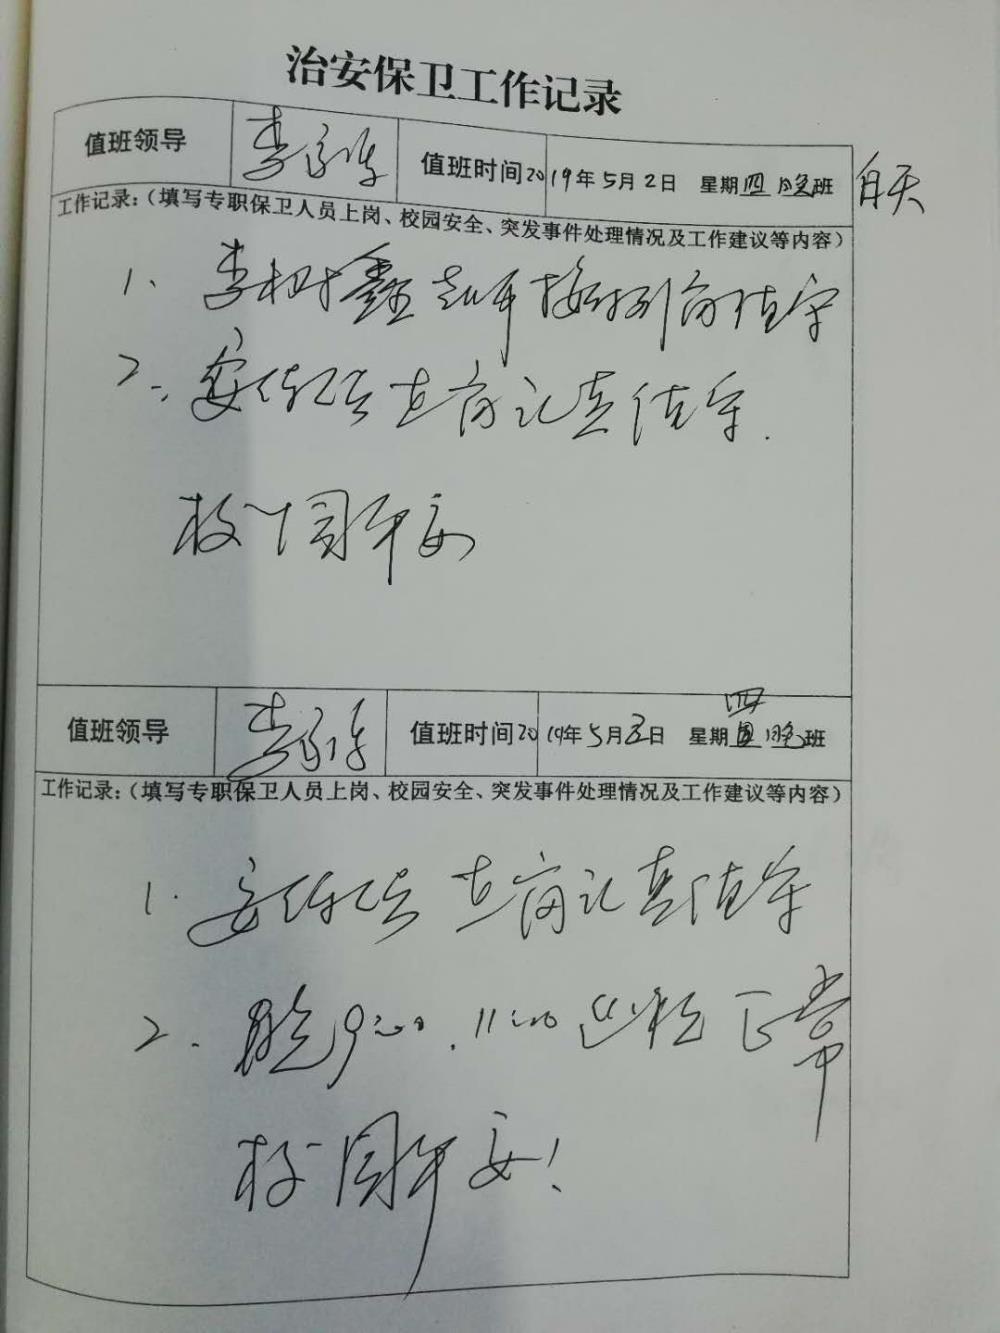 治安保卫工作记录
值班领导 李 值班时间2019年5月2日 星期四 晚班 白天
工作记录:(填写专职保卫人员上岗、校园安全、突发事件处理情况及工作建议等内容)
1. 李树鑫 值守
2. 安保人员在岗认真值守.
校园平安
值班领导 李 值班时间2019年5月2日 星期四 晚班
工作记录:(填写专职保卫人员上岗、校园安全、突发事件处理情况及工作建议等内容)
1. 安保人员在岗认真值守
2. 晚9:00.11:00巡检正常
校园平安!